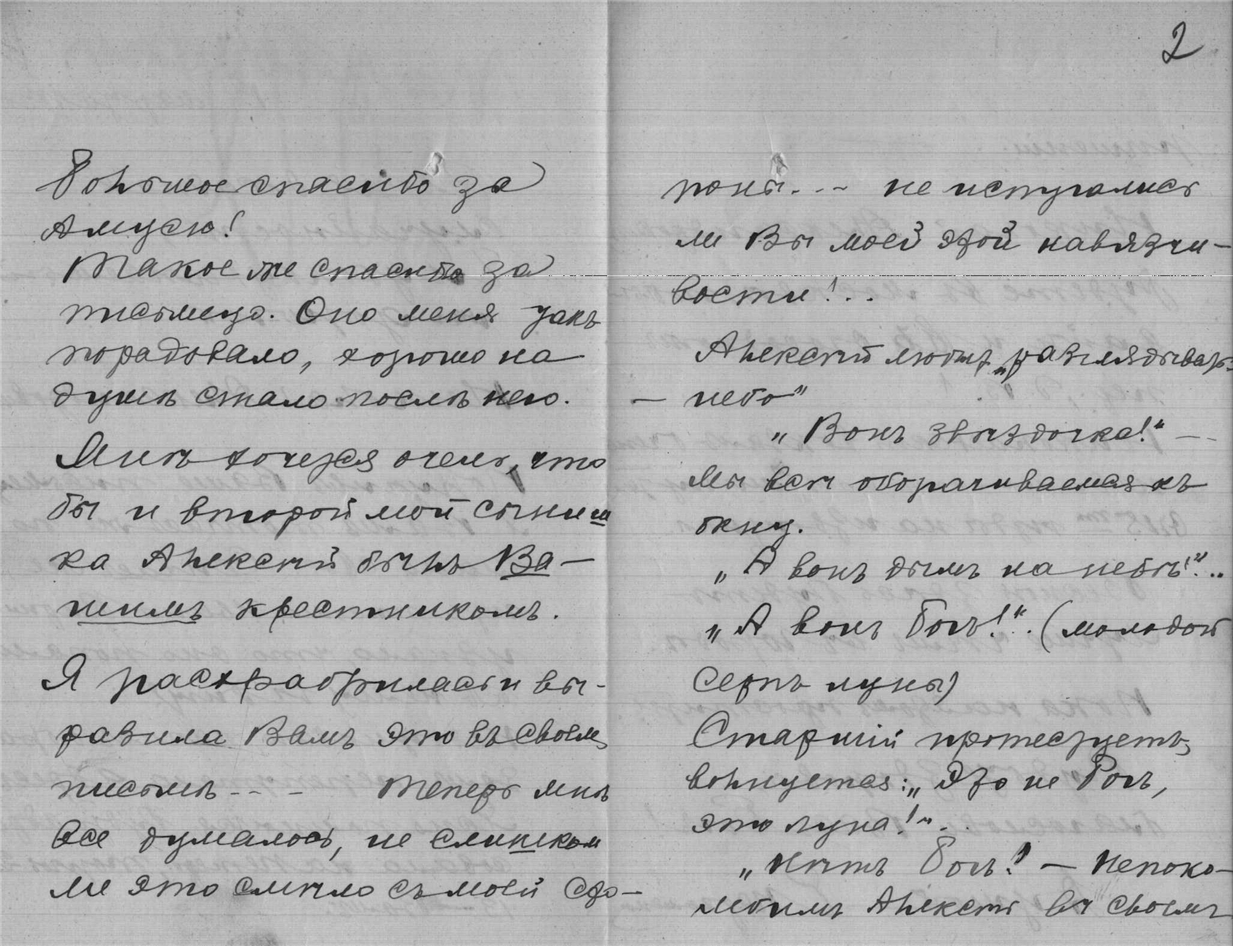 Большое спасибо за
Амусю!
Такое же спасибо за
письмецо. Оно меня такъ
порадовало, хорошо на
душѣ стало послѣ него.
Мнѣ хочется очень, что
бы и второй мой сыниш
ка Алексѣй былъ Ва-
шимъ крестникомъ.
Я расхрабрилась и вы-
разила Вамъ это въ своемъ
письмѣ - - - Теперь мнѣ
все думалось, не слишком
ли это смѣло съ моей сто-
2
роны. - - не испугались
ли Вы моей этой навязчи-
вости!..
Алексѣй любитъ „разглядывать
— небо"
„Вонъ звѣздочка!" —
Мы всѣ оборачиваемся къ
окну.
„А вонъ дымъ на небѣ!"..
„А вонъ Богъ!". (молодой
серпъ луны)
Старшій протестуетъ,
волнуется: „Это не Богъ,
это луна!"..
„Нѣтъ Богъ! — Непоко-
лебимъ Алексѣй въ своемъ